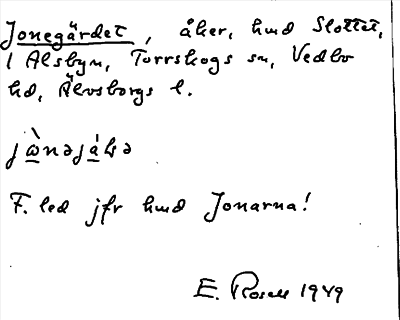 Jonegärdet, åker, hmd Slottet,
1 Alsbyn, Torrskogs sn, Vedbo
hd, Älvsborgs l.
F. led jfr hmd Jonarna!
E. Rosell 1949